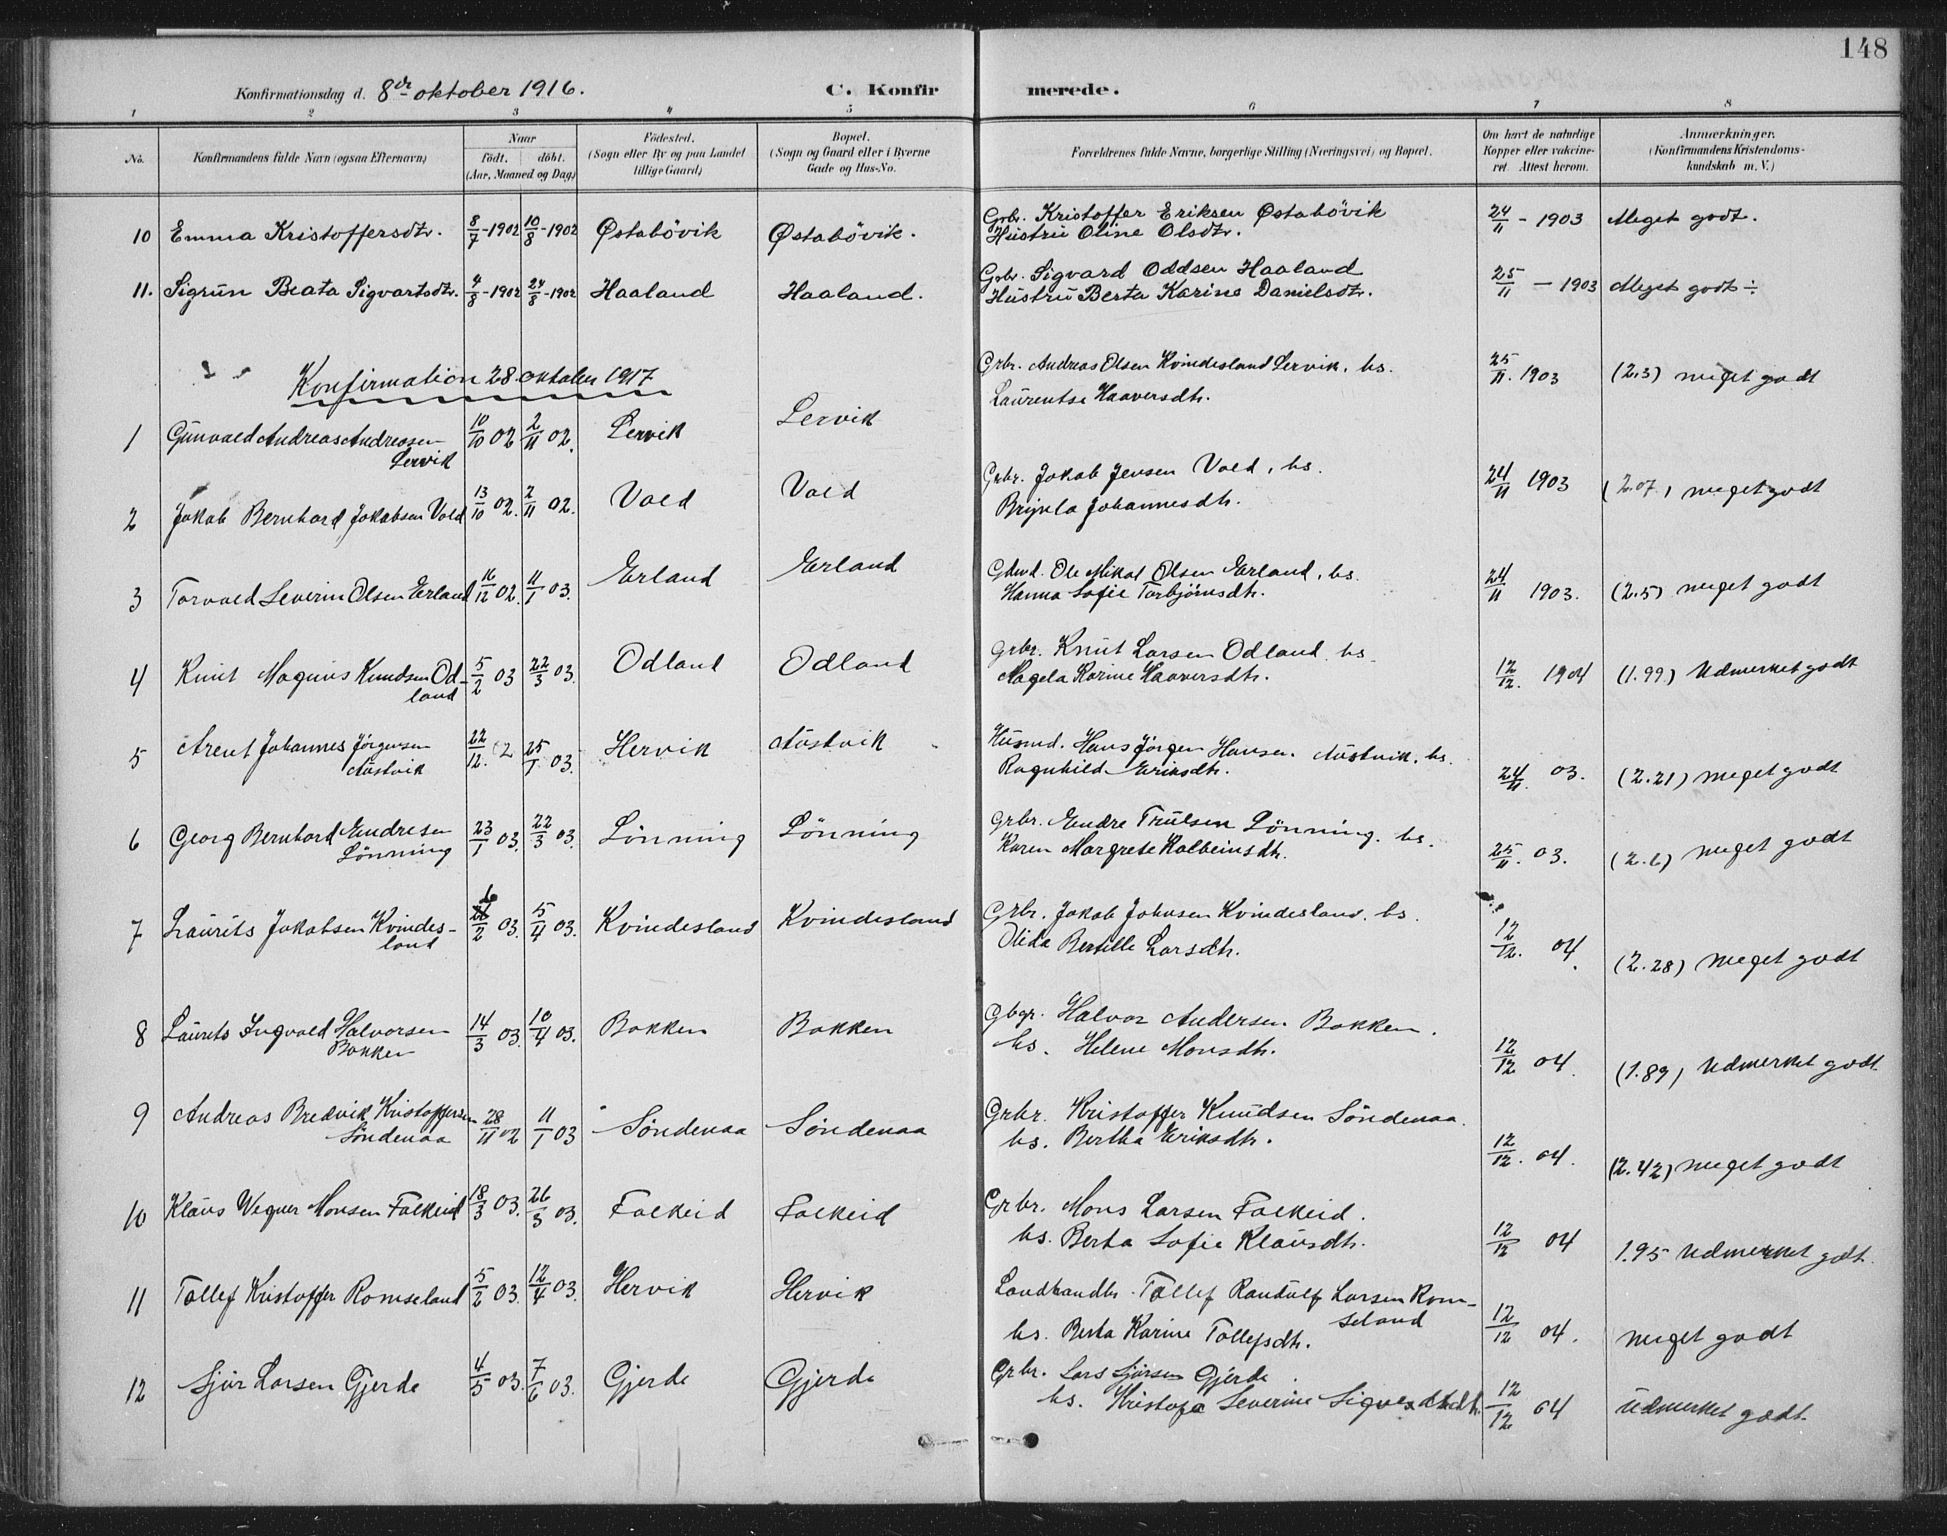 148
Konfirmationsdag d. 8de oktober 1916. C. Konfirmerede.
1 2 3 4 5 6 7 8
No. Konfirmandens fulde Navn (ogsaa Efternavn) Naar født. døbt. (Aar, Maaned og Dag) Fødested. (Sogn eller By og paa Landet tillige Gaard) Bopæl. (Sogn og Gaard eller i Byerne Gade og Hus-No. Forældrenes fulde Navne, borgerlige Stilling (Næringsvei) og Bopæl. Om havt de naturlige Kopper eller vakcineret. Attest herom. Anmærkninger. (Konfirmandens Kristendomskundskab m. V.)
10 Emma Kristoffersdtr. 8/7-1902 10/8-1902 Østabövik Østabövik. Grbr. Kristoffer Eriksen Østabövik 24/11 - 1903 Meget godt.
Hustru Oline Olsdtr.
11. Sigrun Beata Sigvartsdtr. 4/8-1902 24/8-1902 Haaland Haaland. Grbr. Sigvard Oddsen Haaland 25/11 - 1903 Meget godt ÷
Hustru Berta Karine Danielsdtr.
Konfirmation 28 oktober 1917
1 Gunvald Andreas Andreasen 10/10 02 2/11 02. Lervik Lervik Grbr. Andreas Olsen Kvindesland Lervik. hs. 25/11. 1903 (2.3) meget godt
Lervik Laurentse Haaversdtr.
2 Jakob Bernhard Jakobsen Vold 13/10 02. 2/11 02. Vold Vold Grbr. Jakob Jensen Vold, hs. 24/11 1903 (2.07) meget godt
Johannesdtr.
3 Torvald Severin Olsen Erland 16/12 02. 11/1 03. Erland Erland Ole Mikal Olsen Erland, hs. 24/11 1903. (2.5) meget godt
Hanna Sofie Torbjörnsdtr.
4 Knut Magnus Knudsen Od- 5/2 03 22/3 03. Odland Odland Grbr. Knut Larsen Odland hs. 12/12. 1904 (1.99) Udmerket godt
land Magela Karine Haaversdtr.
5 Arent Johannes Jörgensen 22/12. 02 25/1 03. Hervik Austvik Husmd. Hans Jörgen Hansen Austvik. hs. 24/11. 03. (2.21) meget godt
Austvik Ragnhild Eriksdtr.
6 Georg Bernhard Endresen 23/1 03. 22/3 03. Lönning Lönning Grbr. Endre Trulsen Lönning. hs. 25/11. 03. (2.6) meget godt
Lönning Karen Margrete Kolbeinsdtr.
7 Laurits Jakobsen Kvindes- 6/2 03. 5/4 03. Kvindesland Kvindesland Grbr. Jakob Johnsen Kvindesland. hs. 12/12. 04. (2.28) meget godt
land Olida Bertille Larsdtr.
8 Laurits Ingvald Halvorsen 14/3 03. 10/4 03. Bakken Bakken Gbgr. Halvor Andersen Bakken. 12/12 04. (1.89) Udmerket godt
Bakken hs. Helene Monsdtr.
9 Andreas Bredvik Kristoffersen 28/11 02 11/1 03 Söndenaa Söndenaa Grbr. Kristoffer Knudsen Söndenaa. 12/12. 04. (2.42) meget godt
Söndenaa hs. Bertha Eriksdtr.
10 Klaus Wegner Monsen Falkeid 18/3 03. 26/3 03. Falkeid Falkeid Grbr. Mons Larsen Falkeid. 12/12 04 1.95 Udmerket godt.
hs. Berta Sofie Klausdtr.
11 Tollef Kristoffer Romseland 5/2 03. 12/4 03. Hervik Hervik Landhandlr. Tollef Randulf Larsen Rom- 12/12 04. meget godt
seland
hs. Berta Karine Tollefsdtr.
12 Sjur Larsen Gjerde 4/5 03. 7/6 03. Gjerde Gjerde Grbr. Lars Sjursen Gjerde. 12/12 04 Udmerket godt.
hs. Severine